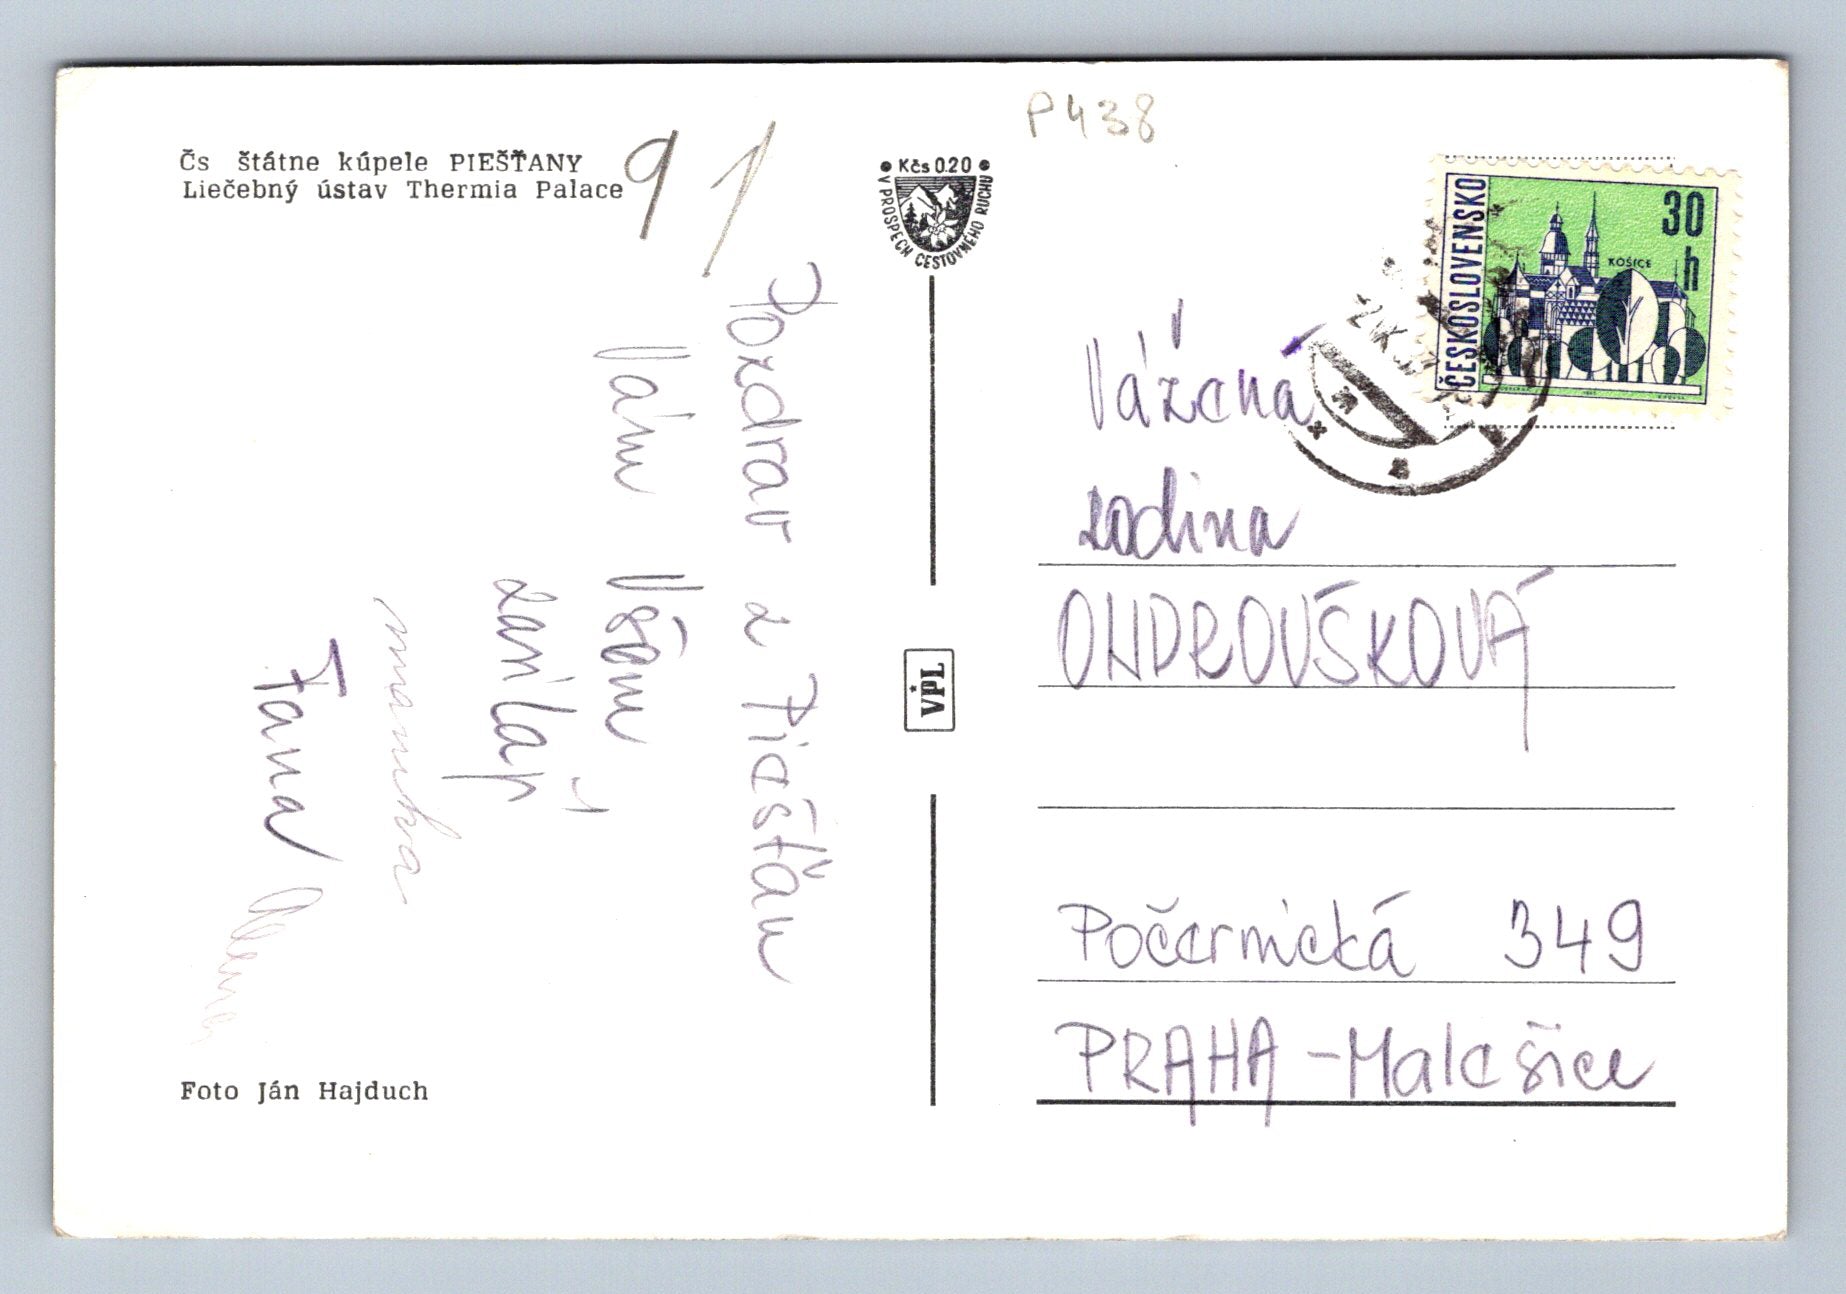 Čs štátne kúpele PIEŠŤANY
Liečebný ústav Thermia Palace
91
P438
Kčs 0.20
V PROSPECH CESTOVNÉHO RUCHU
ČESKOSLOVENSKO
30
h
KOŠICE
Pozdrav z Piešťan
Vám Všem
zasílají
maminka
Jana
Alena
VPL
Vážená
rodina
ONDROUŠKOVÁ
Počernická 349
PRAHA - Malešice
Foto Ján Hajduch